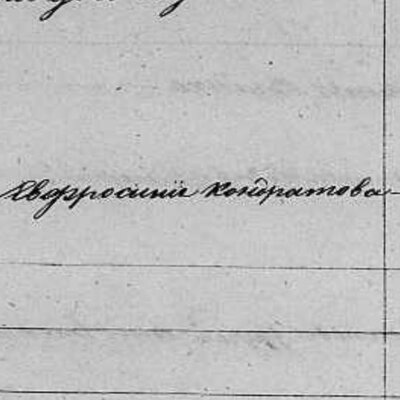 Евфросинiя Кондратова